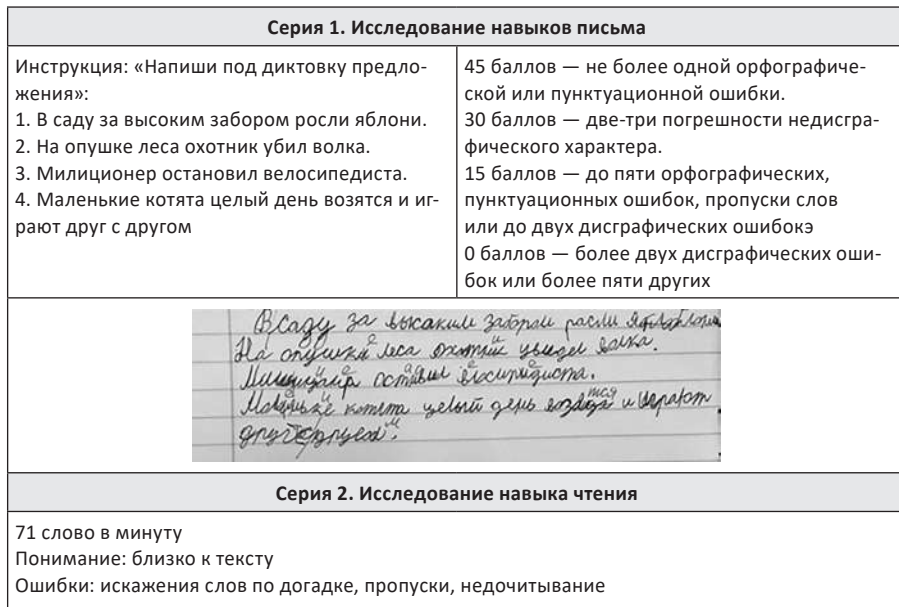 Серия 1. Исследование навыков письма
Инструкция: «Напиши под диктовку предло-
жения»:
1. В саду за высоким забором росли яблони.
2. На опушке леса охотник убил волка.
3. Милиционер остановил велосипедиста.
4. Маленькие котята целый день возятся и иг-
рают друг с другом
45 баллов — не более одной орфографиче-
ской или пунктуационной ошибки.
30 баллов — две-три погрешности недисгра-
фического характера.
15 баллов — до пяти орфографических,
пунктуационных ошибок, пропуски слов
или до двух дисграфических ошибокэ
0 баллов — более двух дисграфических оши-
бок или более пяти других
В саду за высаким забором расли
На опушке леса увидел волка.
котята целый день и играют
Серия 2. Исследование навыка чтения
71 слово в минуту
Понимание: близко к тексту
Ошибки: искажения слов по догадке, пропуски, недочитывание